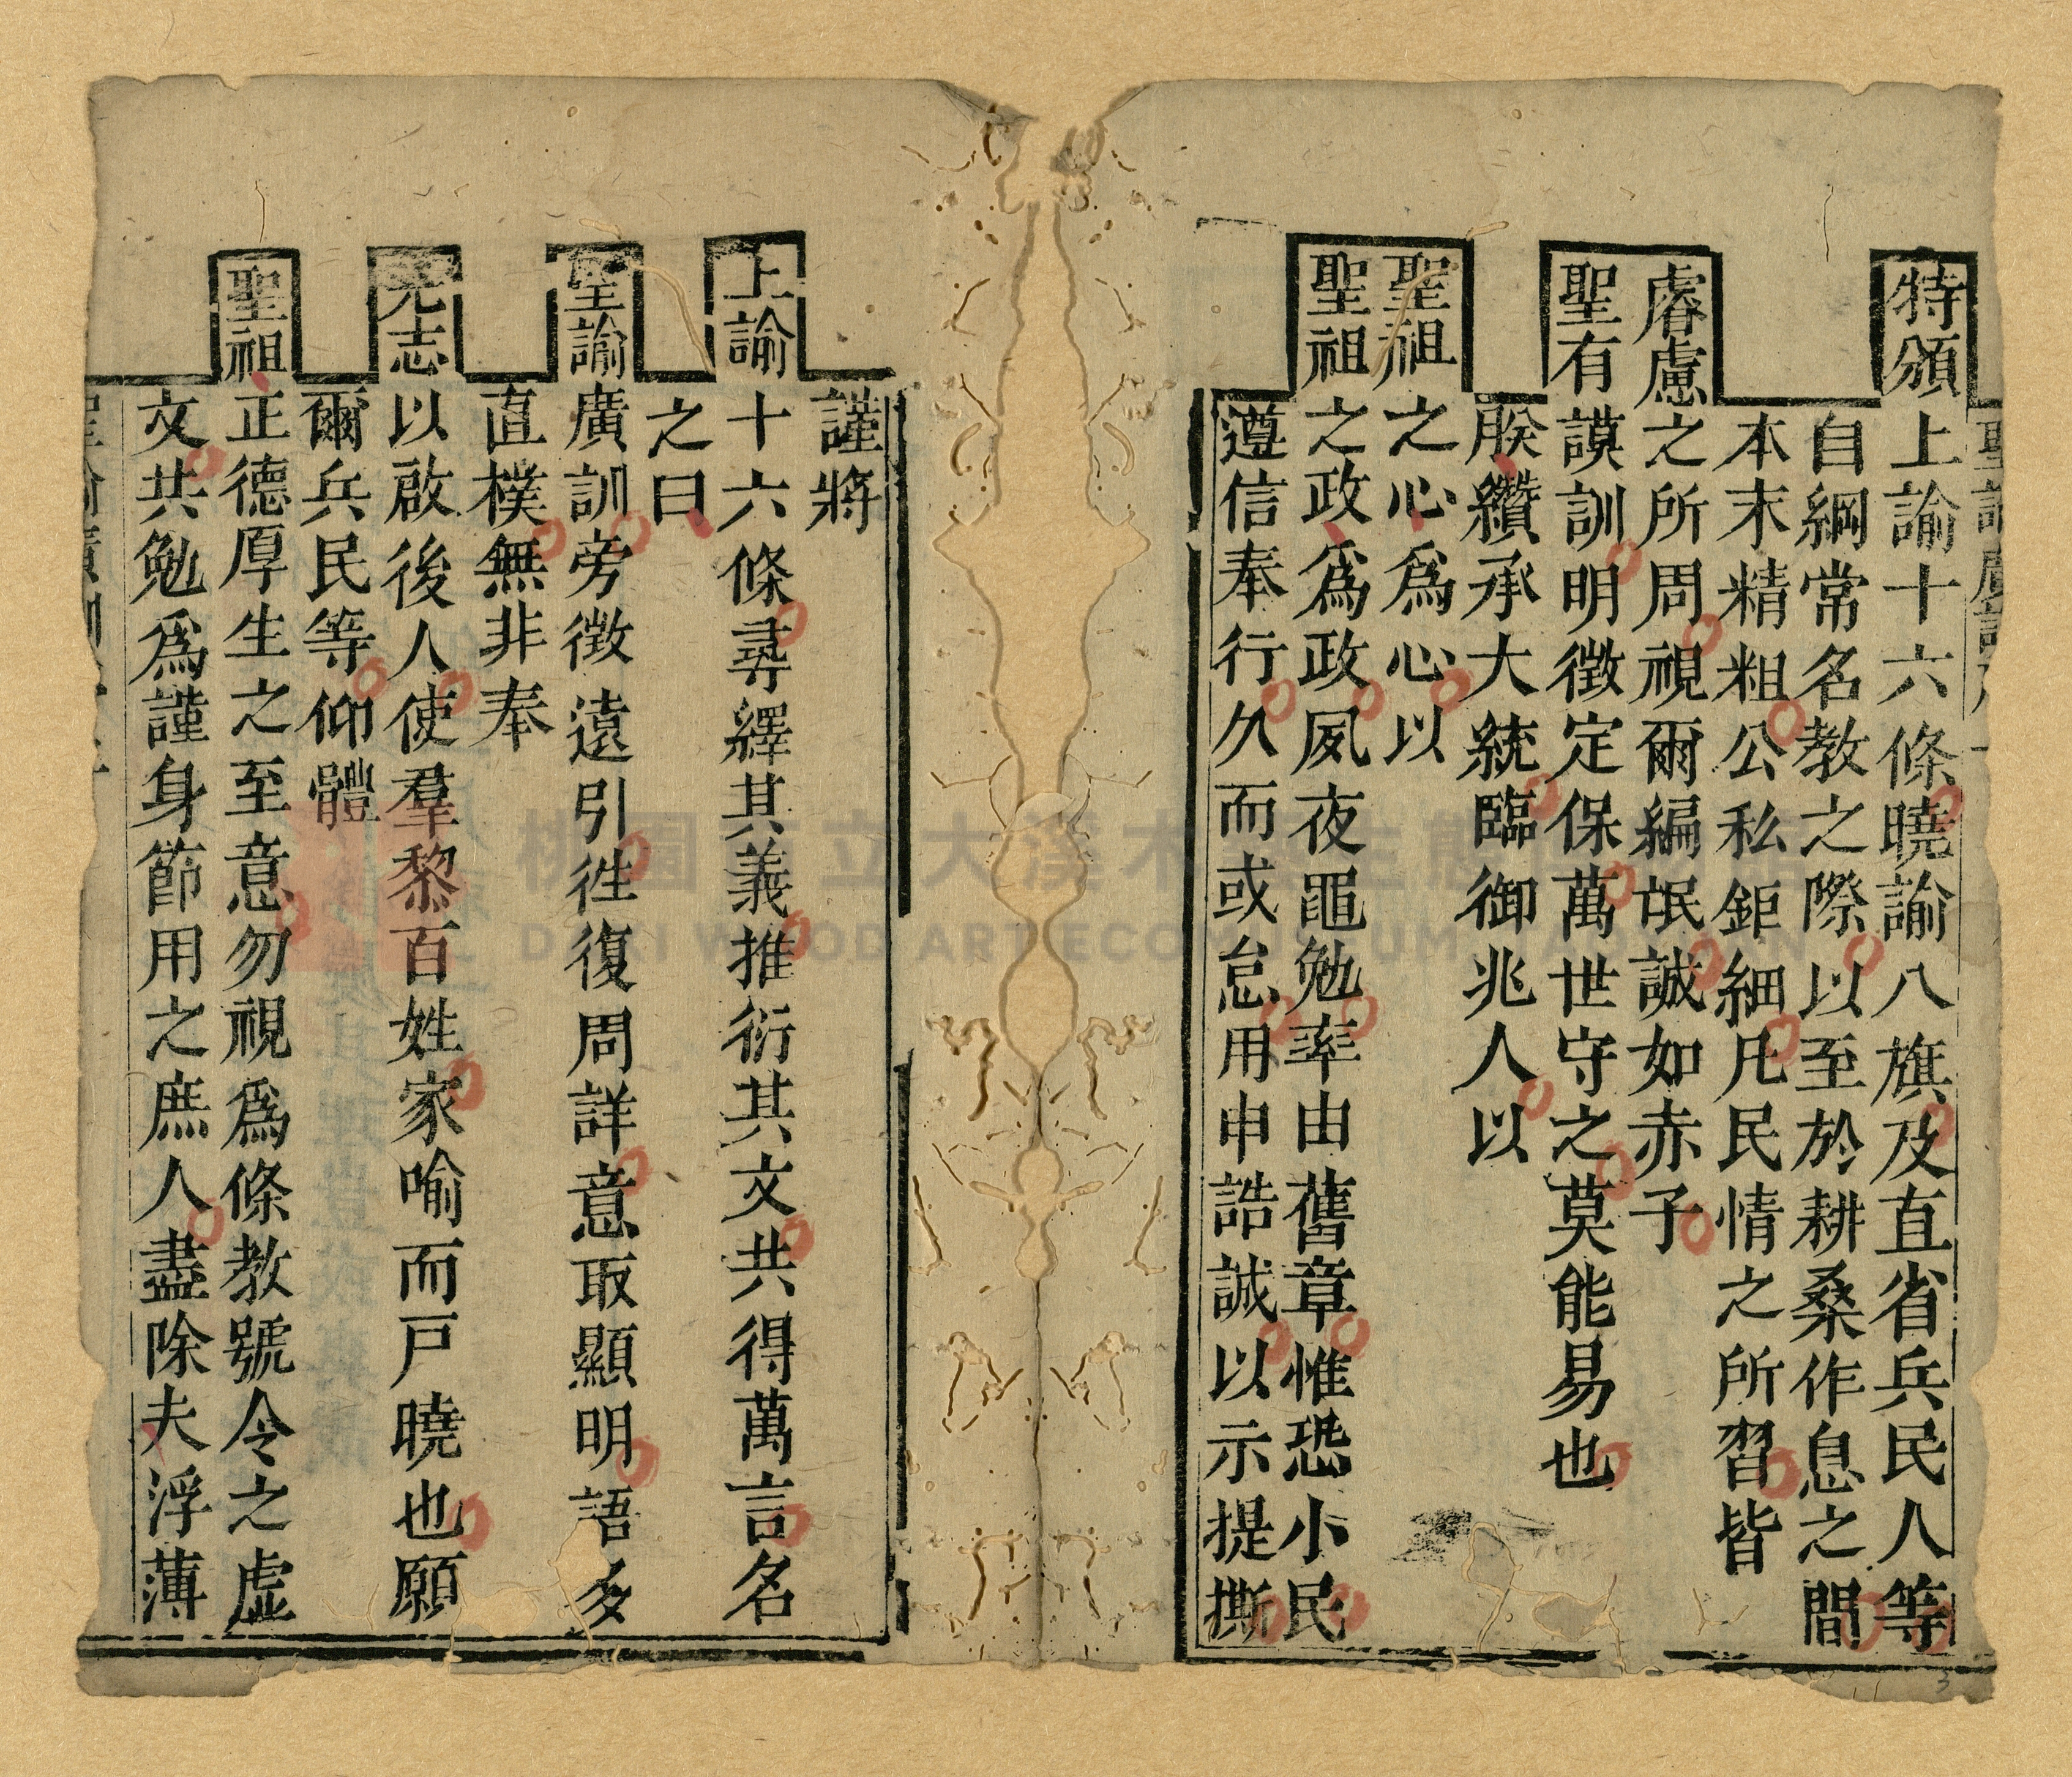 特頒上諭十六條曉諭八旗及直省兵民人等
自綱常名教之際以至於耕桑作息之間
本末精粗公私鉅細凡民情之所習皆
睿慮之所周視爾編氓誠如赤子
聖有謨訓明徵定保萬世守之莫能易也
朕纘承大統臨御兆人以
聖祖之心爲心以
聖祖之政爲政夙夜黽勉率由舊章惟恐小民
遵信奉行久而或怠用申誥誡以示提撕
謹將
上諭十六條尋繹其義推衍其文共得萬言名
之曰
聖諭廣訓旁徵遠引徃復周詳意取顯明語多
直樸無非奉
先志以啟後人使羣黎百姓家喻而戸曉也願
爾兵民等仰體
聖祖正德厚生之至意勿視爲條教號令之虛
文共勉爲謹身節用之庶人盡除夫浮薄